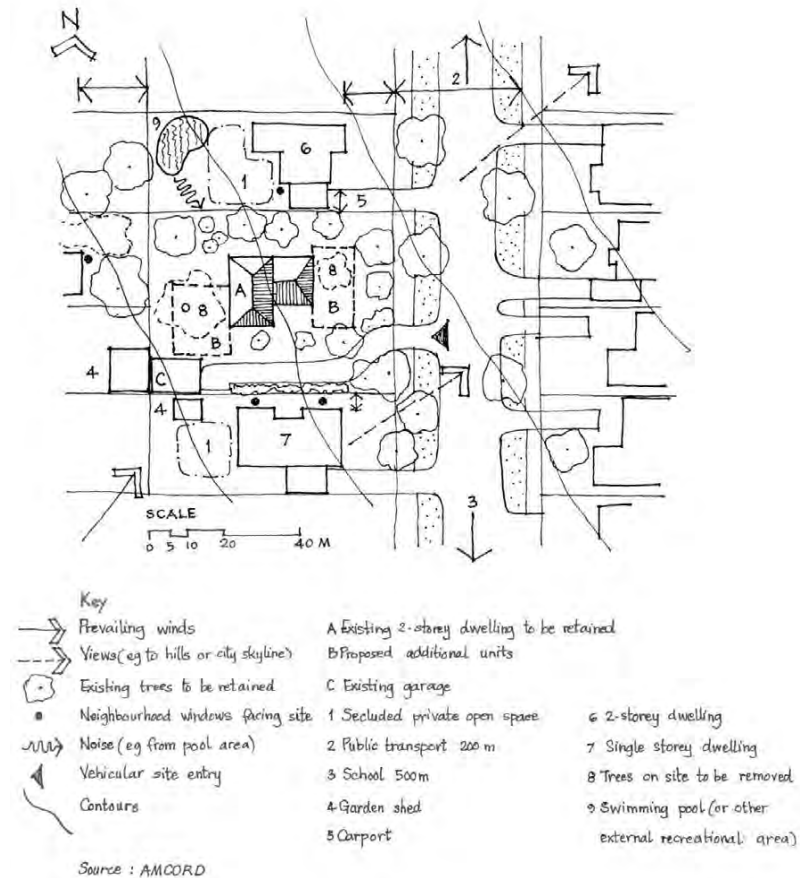 N
2
9
6
1
5
8
A
B
8
B
4
C
4
1
7
3
SCALE
0 5 10 20 40 M
Key
Prevailing winds
Views (eg to hills or city skyline)
Existing trees to be retained
Neighbourhood windows facing site
Noise (eg from pool area)
Vehicular site entry
Contours
A Existing 2-storey dwelling to be retained
B Proposed additional units
C Existing garage
1 Secluded private open space
2 Public transport 200 m
3 School 500m
4 Garden shed
5 Carport
6 2-storey dwelling
7 Single storey dwelling
8 Trees on site to be removed
9 Swimming pool (or other
external recreational area)
Source : AMCORD